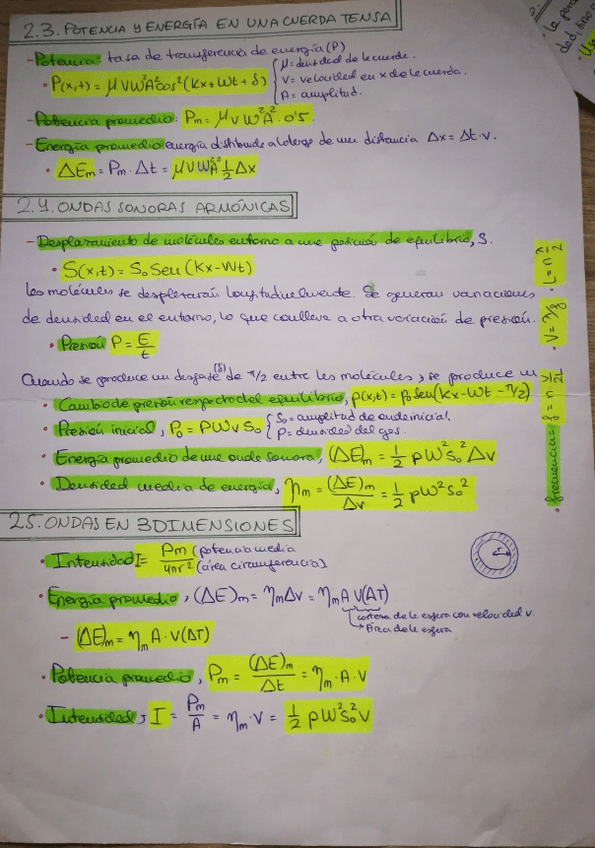 2.3. POTENCIA Y ENERGÍA EN UNA CUERDA TENSA
- Potencia: tasa de transferencia de energía (P)
• P(x,t) = μVW²A²cos²(Kx+Wt+δ) { μ = densidad de la cuerda.
V = velocidad en x de la cuerda.
A = amplitud.
- Potencia promedio: Pm = μVW²A²·0'5.
- Energía promedio: energía distribuida a lo largo de una distancia Δx = Δt·v.
• ΔEm = Pm·Δt = μVW²A² 1/2 Δx
2.4. ONDAS SONORAS ARMÓNICAS
- Desplazamiento de moléculas entorno a una posición de equilibrio, S.
• S(x,t) = S₀ Sen(Kx-Wt)
Las moléculas se desplazarán longitudinalmente. Se generan variaciones
de densidad en el entorno, lo que conlleva a otra variación de presión.
• Presión P = E/t
Cuando se produce un desfase (δ) de π/2 entre las moléculas, se produce un
• Cambio de presión respecto del equilibrio, p(x,t) = p₀ Sen(Kx-Wt-π/2)
• Presión inicial, P₀ = ρWVS₀ { S₀ = amplitud de onda inicial.
ρ = densidad del gas.
• Energía promedio de una onda sonora, (ΔE)m = 1/2 ρW²S₀²ΔV
• Densidad media de energía, ηm = (ΔE)m/ΔV = 1/2 ρW²S₀²
• frecuencia =
2.5. ONDAS EN 3 DIMENSIONES
• Intensidad I = Pm/4πr² (potencia media
(área circunferencia)
r
• Energía promedio, (ΔE)m = ηmΔV = ηm A V(ΔT)
corteza de la esfera con velocidad v.
Área de la esfera
- (ΔE)m = ηm A·V(ΔT)
• Potencia promedio, Pm = (ΔE)m/Δt = ηm·A·V
• Intensidad, I = Pm/A = ηm·V = 1/2 ρW²S₀²V